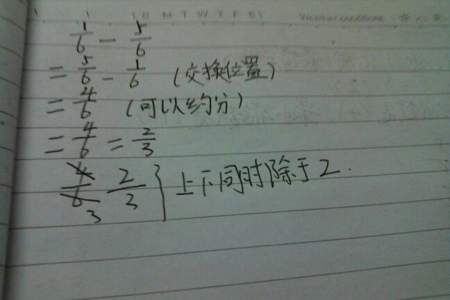 1/6 - 5/6
= 5/6 - 1/6 (交换位置)
= 4/6 (可以约分)
= 4/6 = 2/3
4/6 2/3 } 上下同时除于2.
3